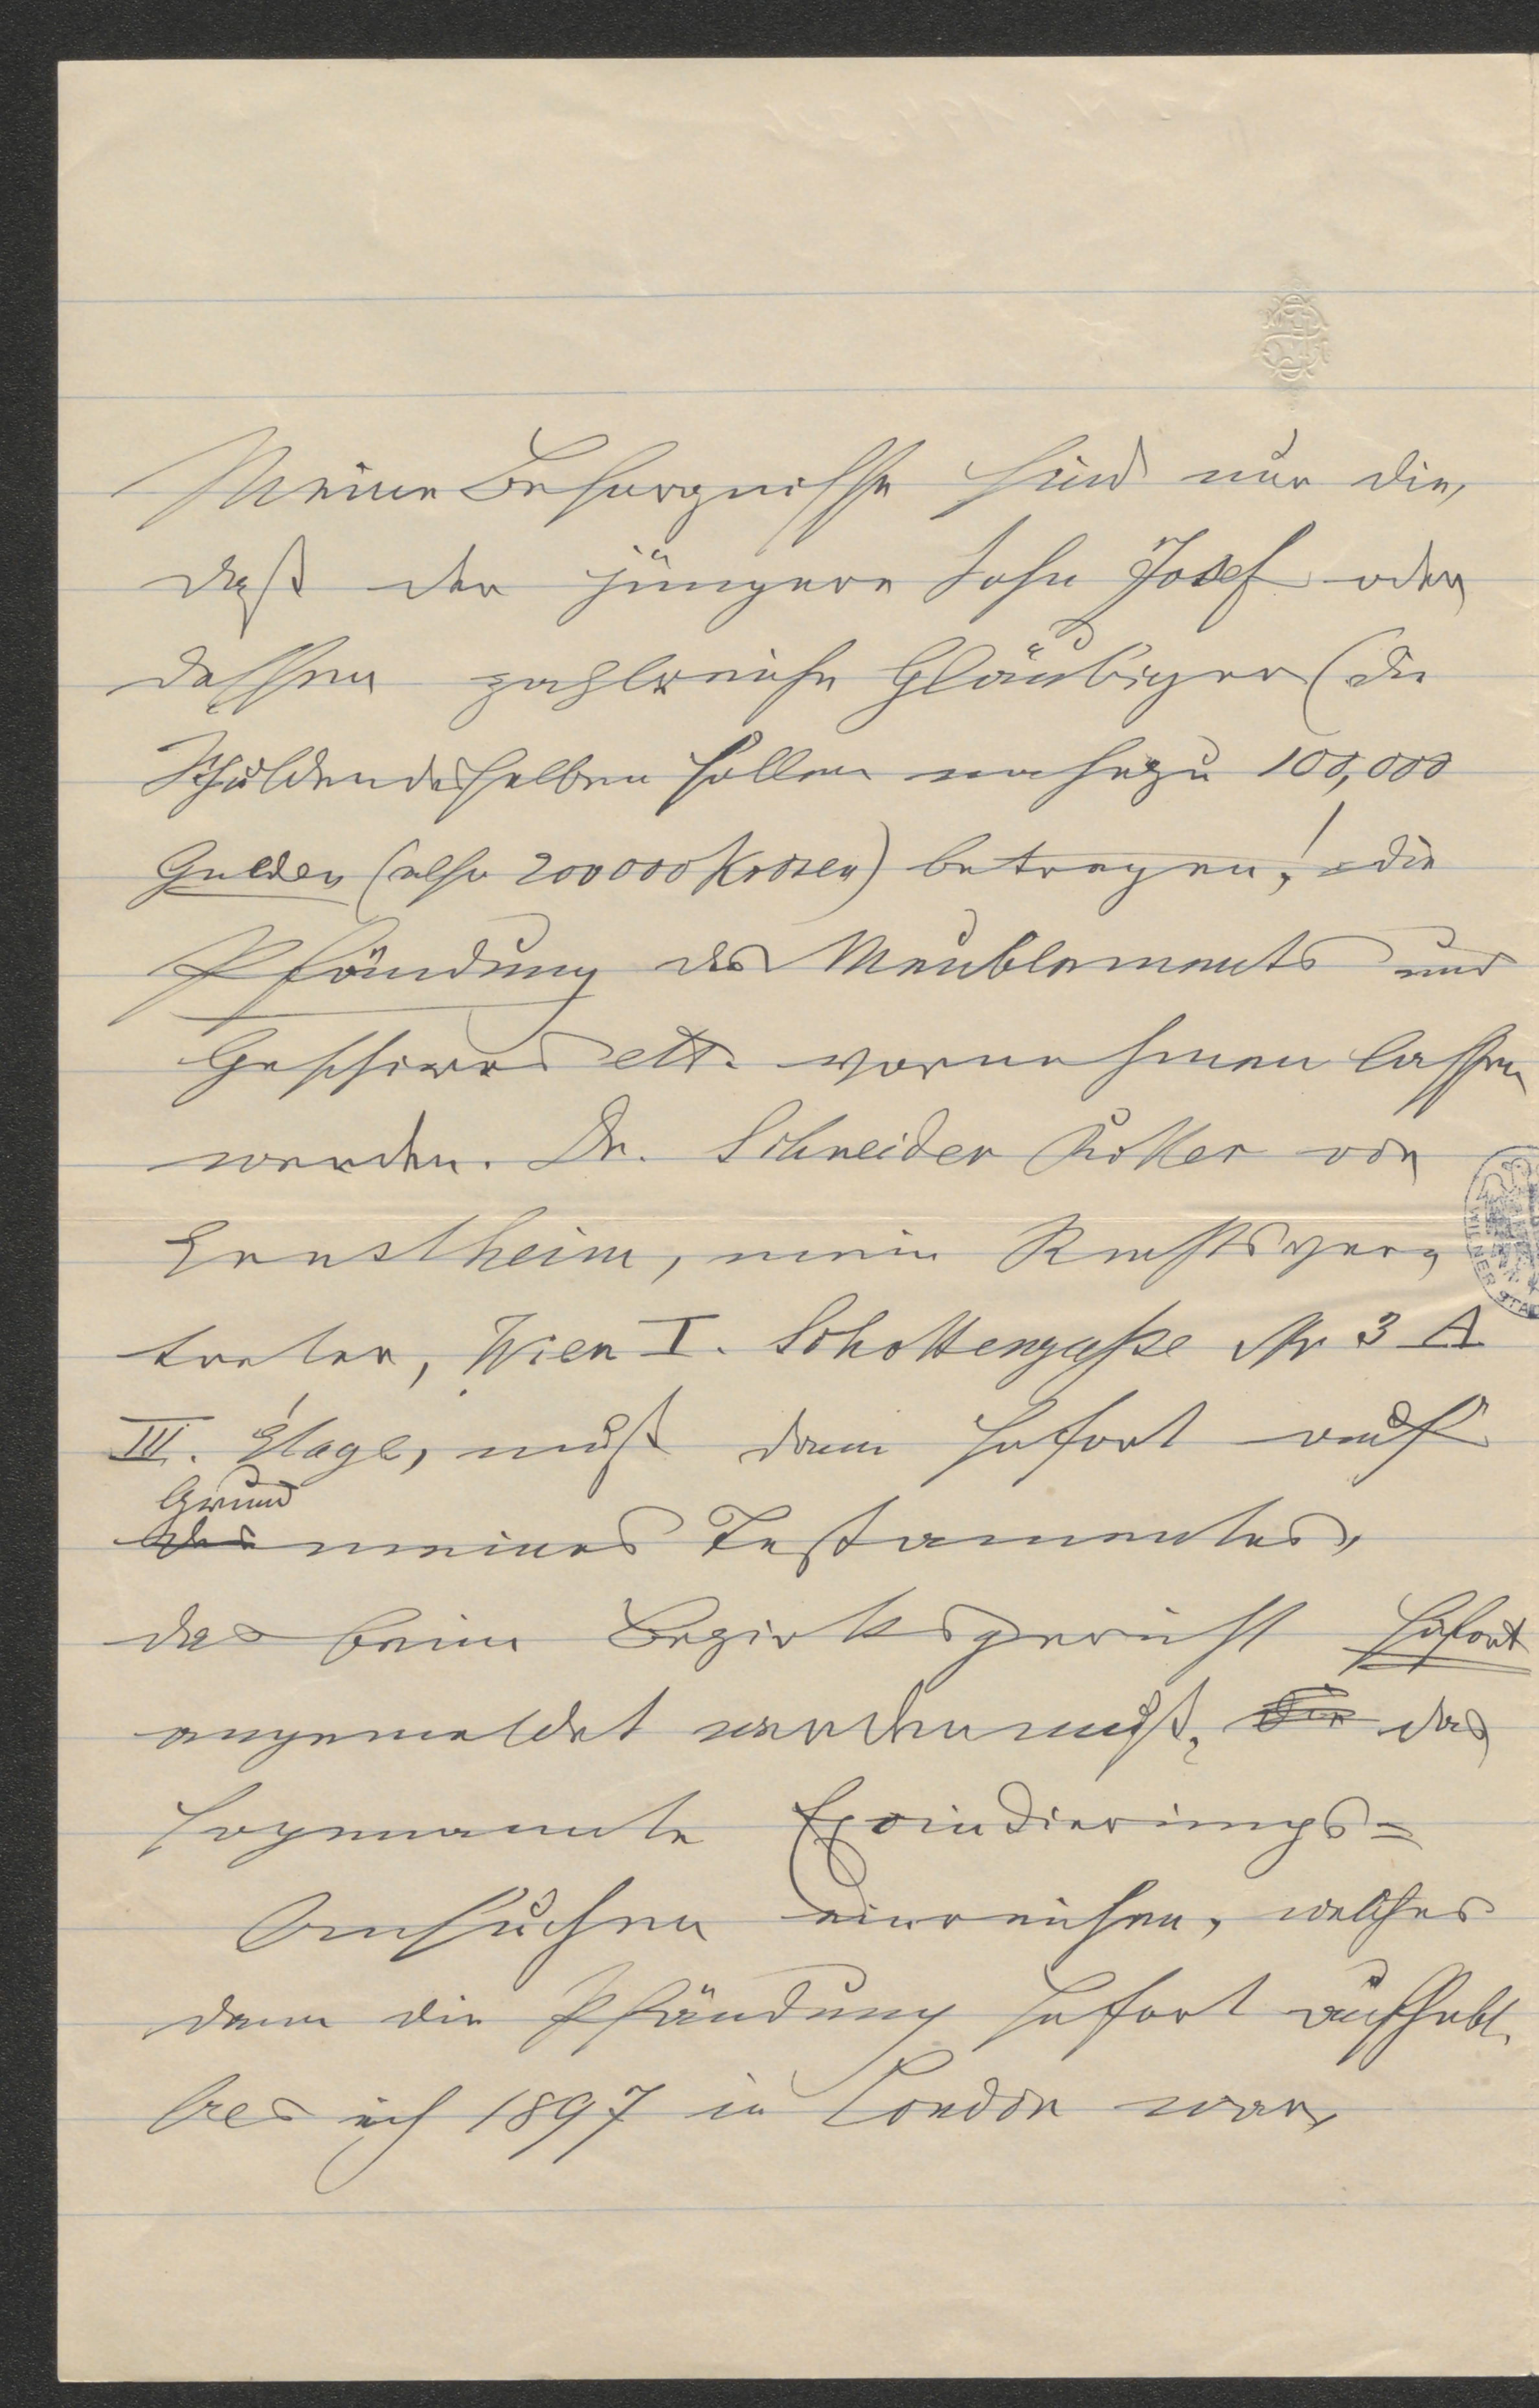 Meine Besorgnisse sind nur die,
daß der jüngere Sohn Josef oder
dessen zahlreiche Gläubiger (die
Schulden desselben sollen nahezu 100,000
Gulden (also 200000 Kronen) betragen,! die
Pfändung des Meublements und
Geschirres ett. vornehmen lassen
werden. Dr. Schneider Ritter von
Ernstheim, mein Rechtsver-
treter, Wien I. Schottengaße Nr 3 A
III. Etage, muß dann sofort auf
Grund
des meines Testamentes,
das beim Bezirksgericht sofort
angemeldet werden muß, die das
sogenannte Exscindierungs=
Ansuchen einreichen, welches
dann die Pfändung sofort aufhebt.
Als ich 1897 in London war,
WIENER STA